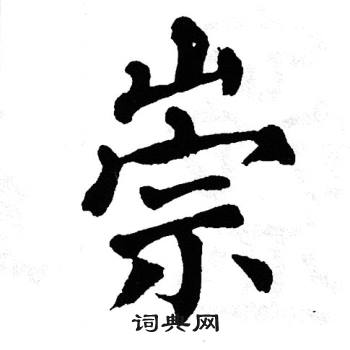 崇
词典网